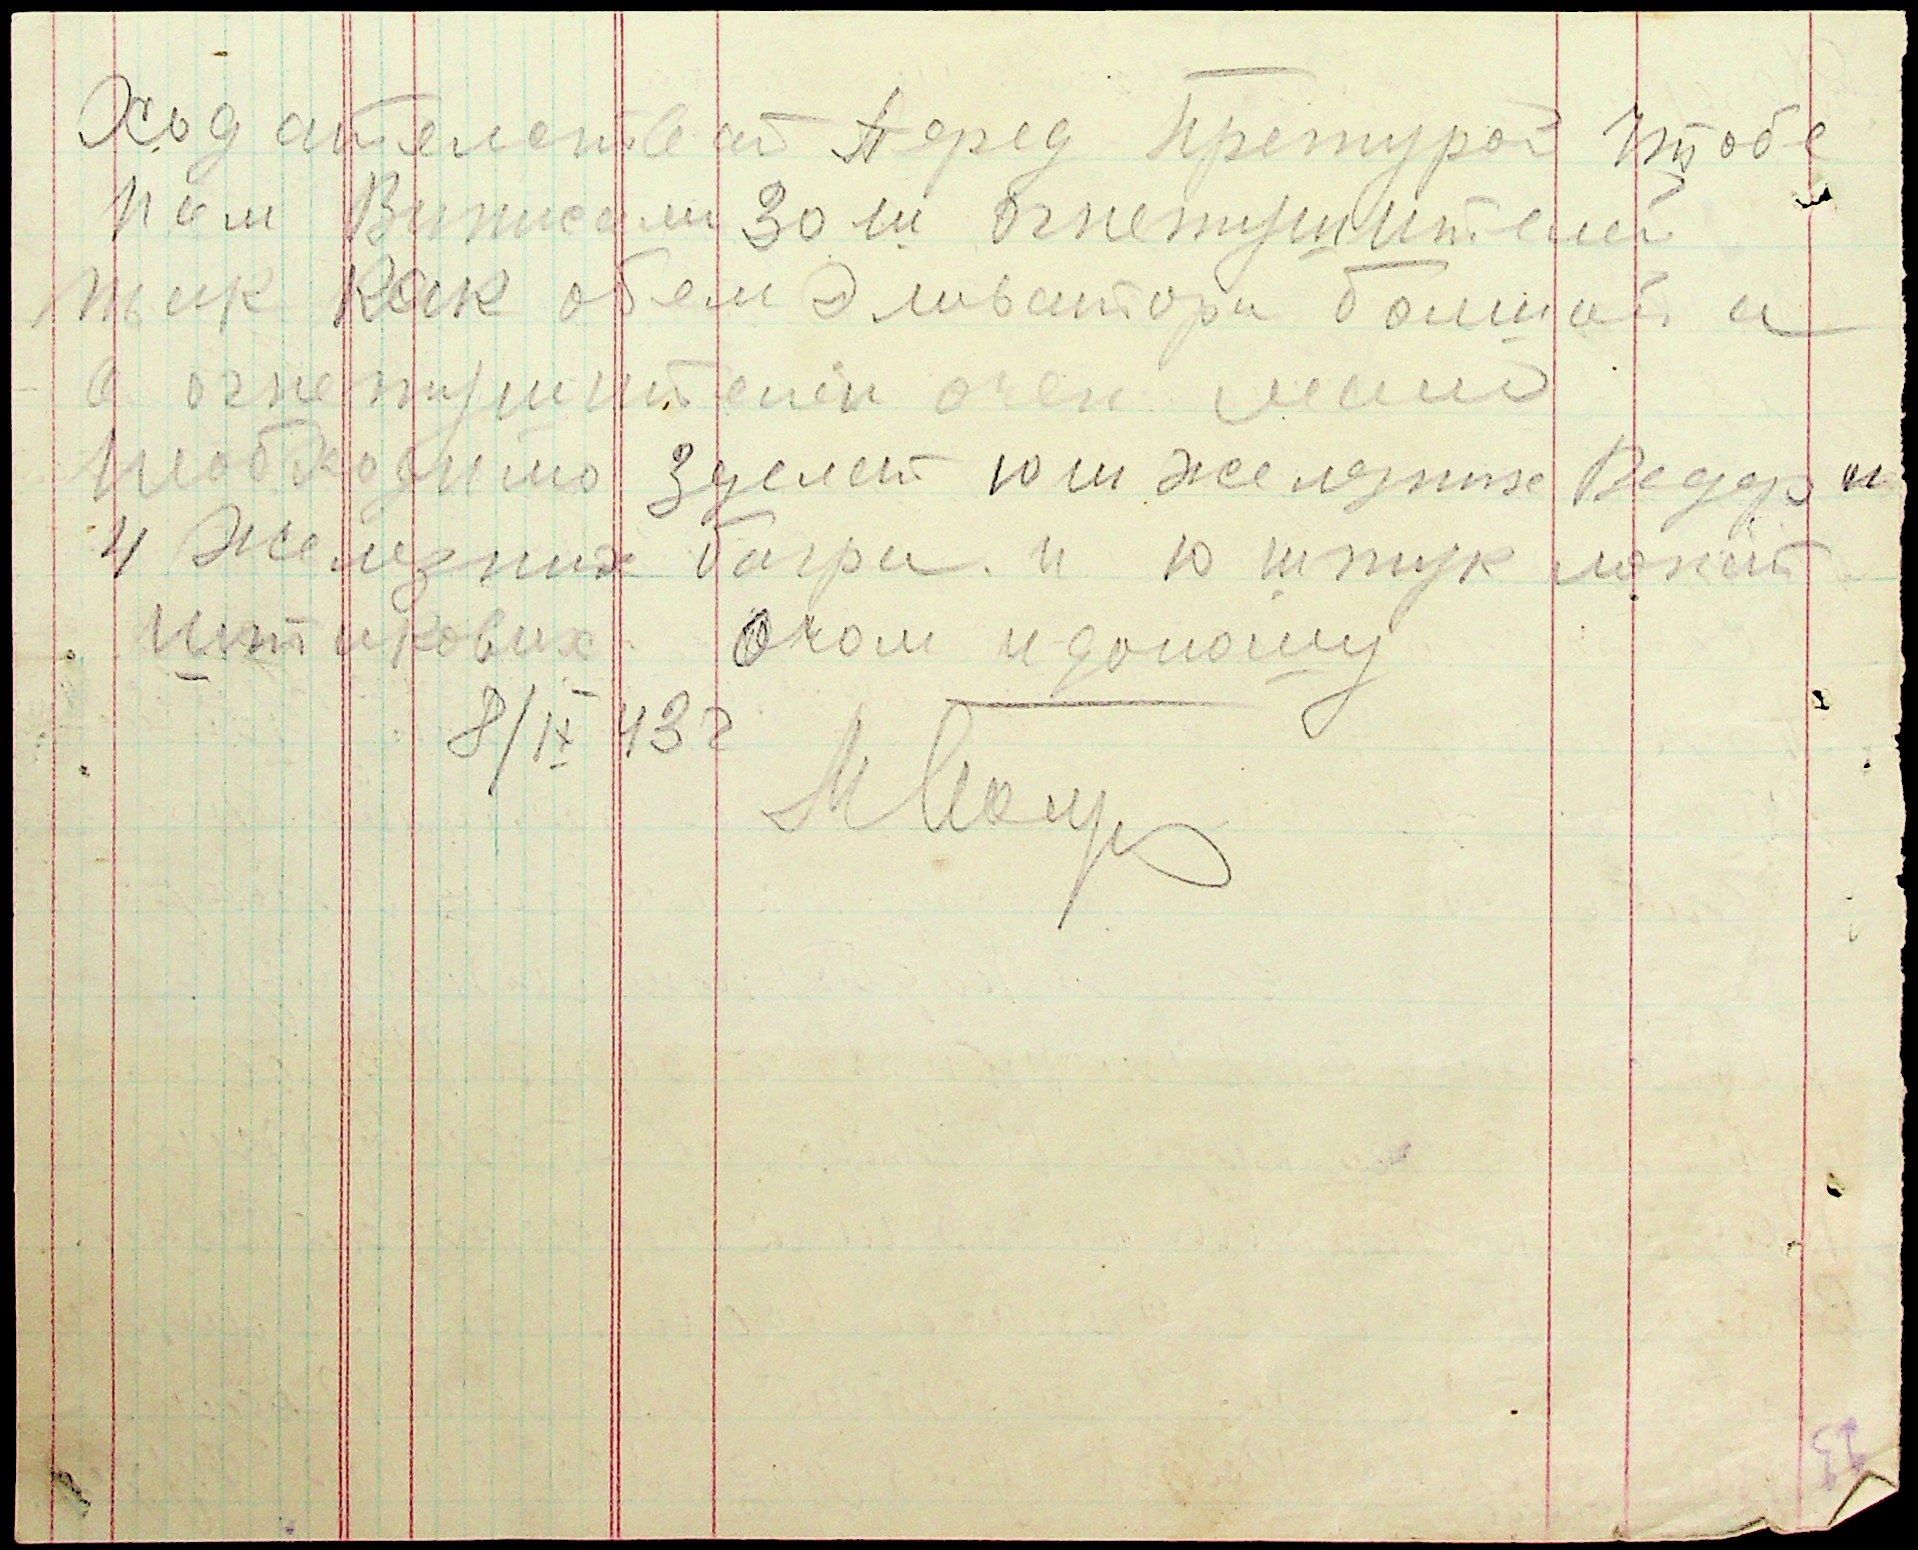 Ходателстват перед Претурой Чтобе
нам Виписали 30 ш огнетушителей
так как обем Элеватора болшой и
а огнетушителей очен мало
Необходимо Зделат 10 ш железних Ведер и
4 Железних багра. и 10 штук лопат
штикових. О чом и доношу
8/IX 43 г